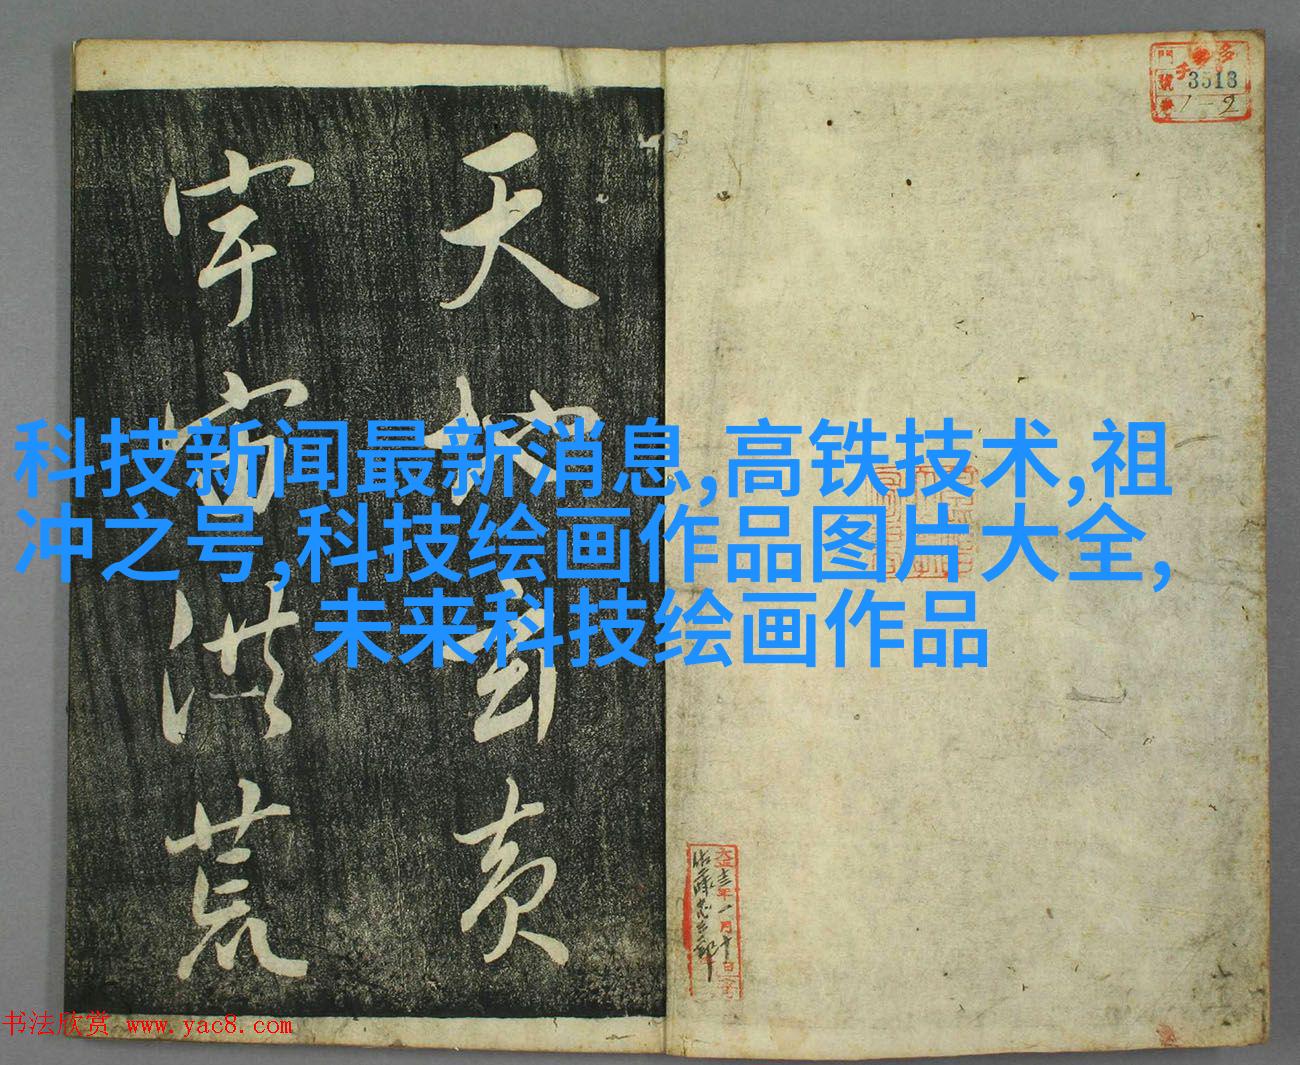 多
3513
1-2
天地玄黄
宇宙洪荒
科技新闻最新消息,高铁技术,祖
冲之号,科技绘画作品图片大全,
未来科技绘画作品
书法欣赏 www.yac8.com